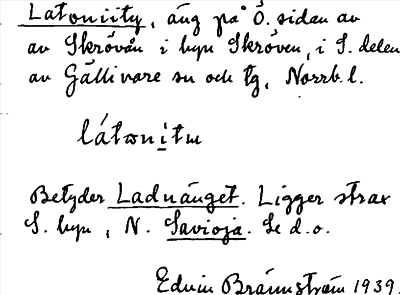 Latoniity, äng på Ö. sidan av
av Skrövån i byn Skröven, i S. delen
av Gällivare sn och tg, Norrb. l.
látonitu
Betyder Laduänget. Ligger strax
S. byn, N. Savioja. Se d.o.
Edvin Brännström 1939.